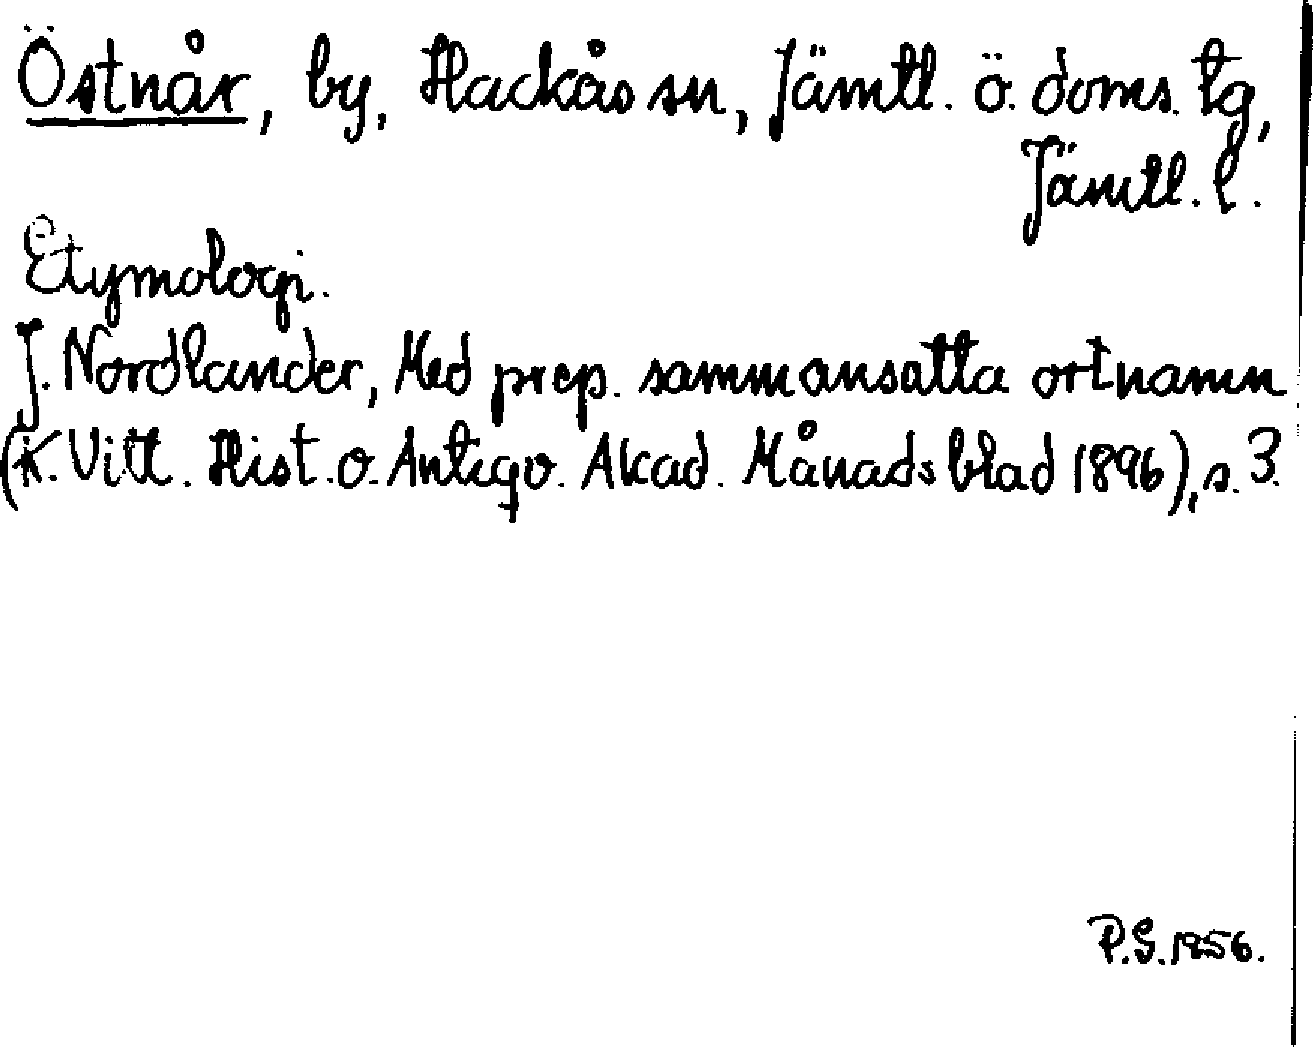 Östnår, by, Hackås sn, Jämtl. ö. doms. tg,
Jämtl. l.
Etymologi.
J. Nordlander, Med prep. sammansatta ortnamn
(K. Vitt. Hist. o. Antiqv. Akad. Månadsblad 1896), s. 3.
P.G. 1956.